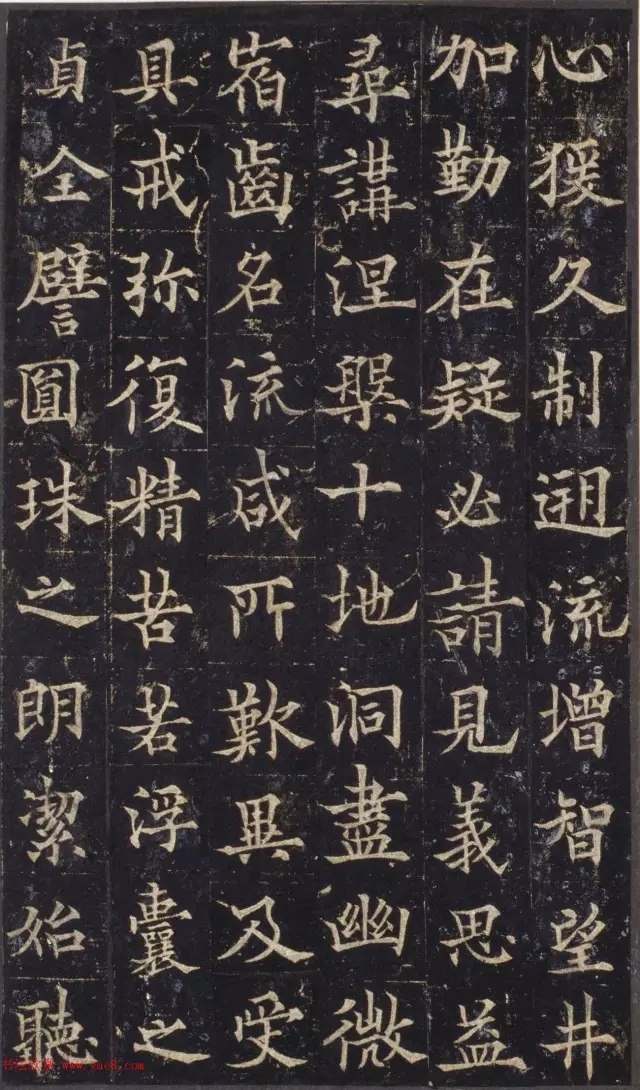 心猨久制遡流增智望井
加勤在疑必請見義思益
尋講涅槃十地洞盡幽微
宿齒名流咸所歎異及受
具戒弥復精苦若浮囊之
貞全譬圓珠之朗潔始聽
www.yac8.com